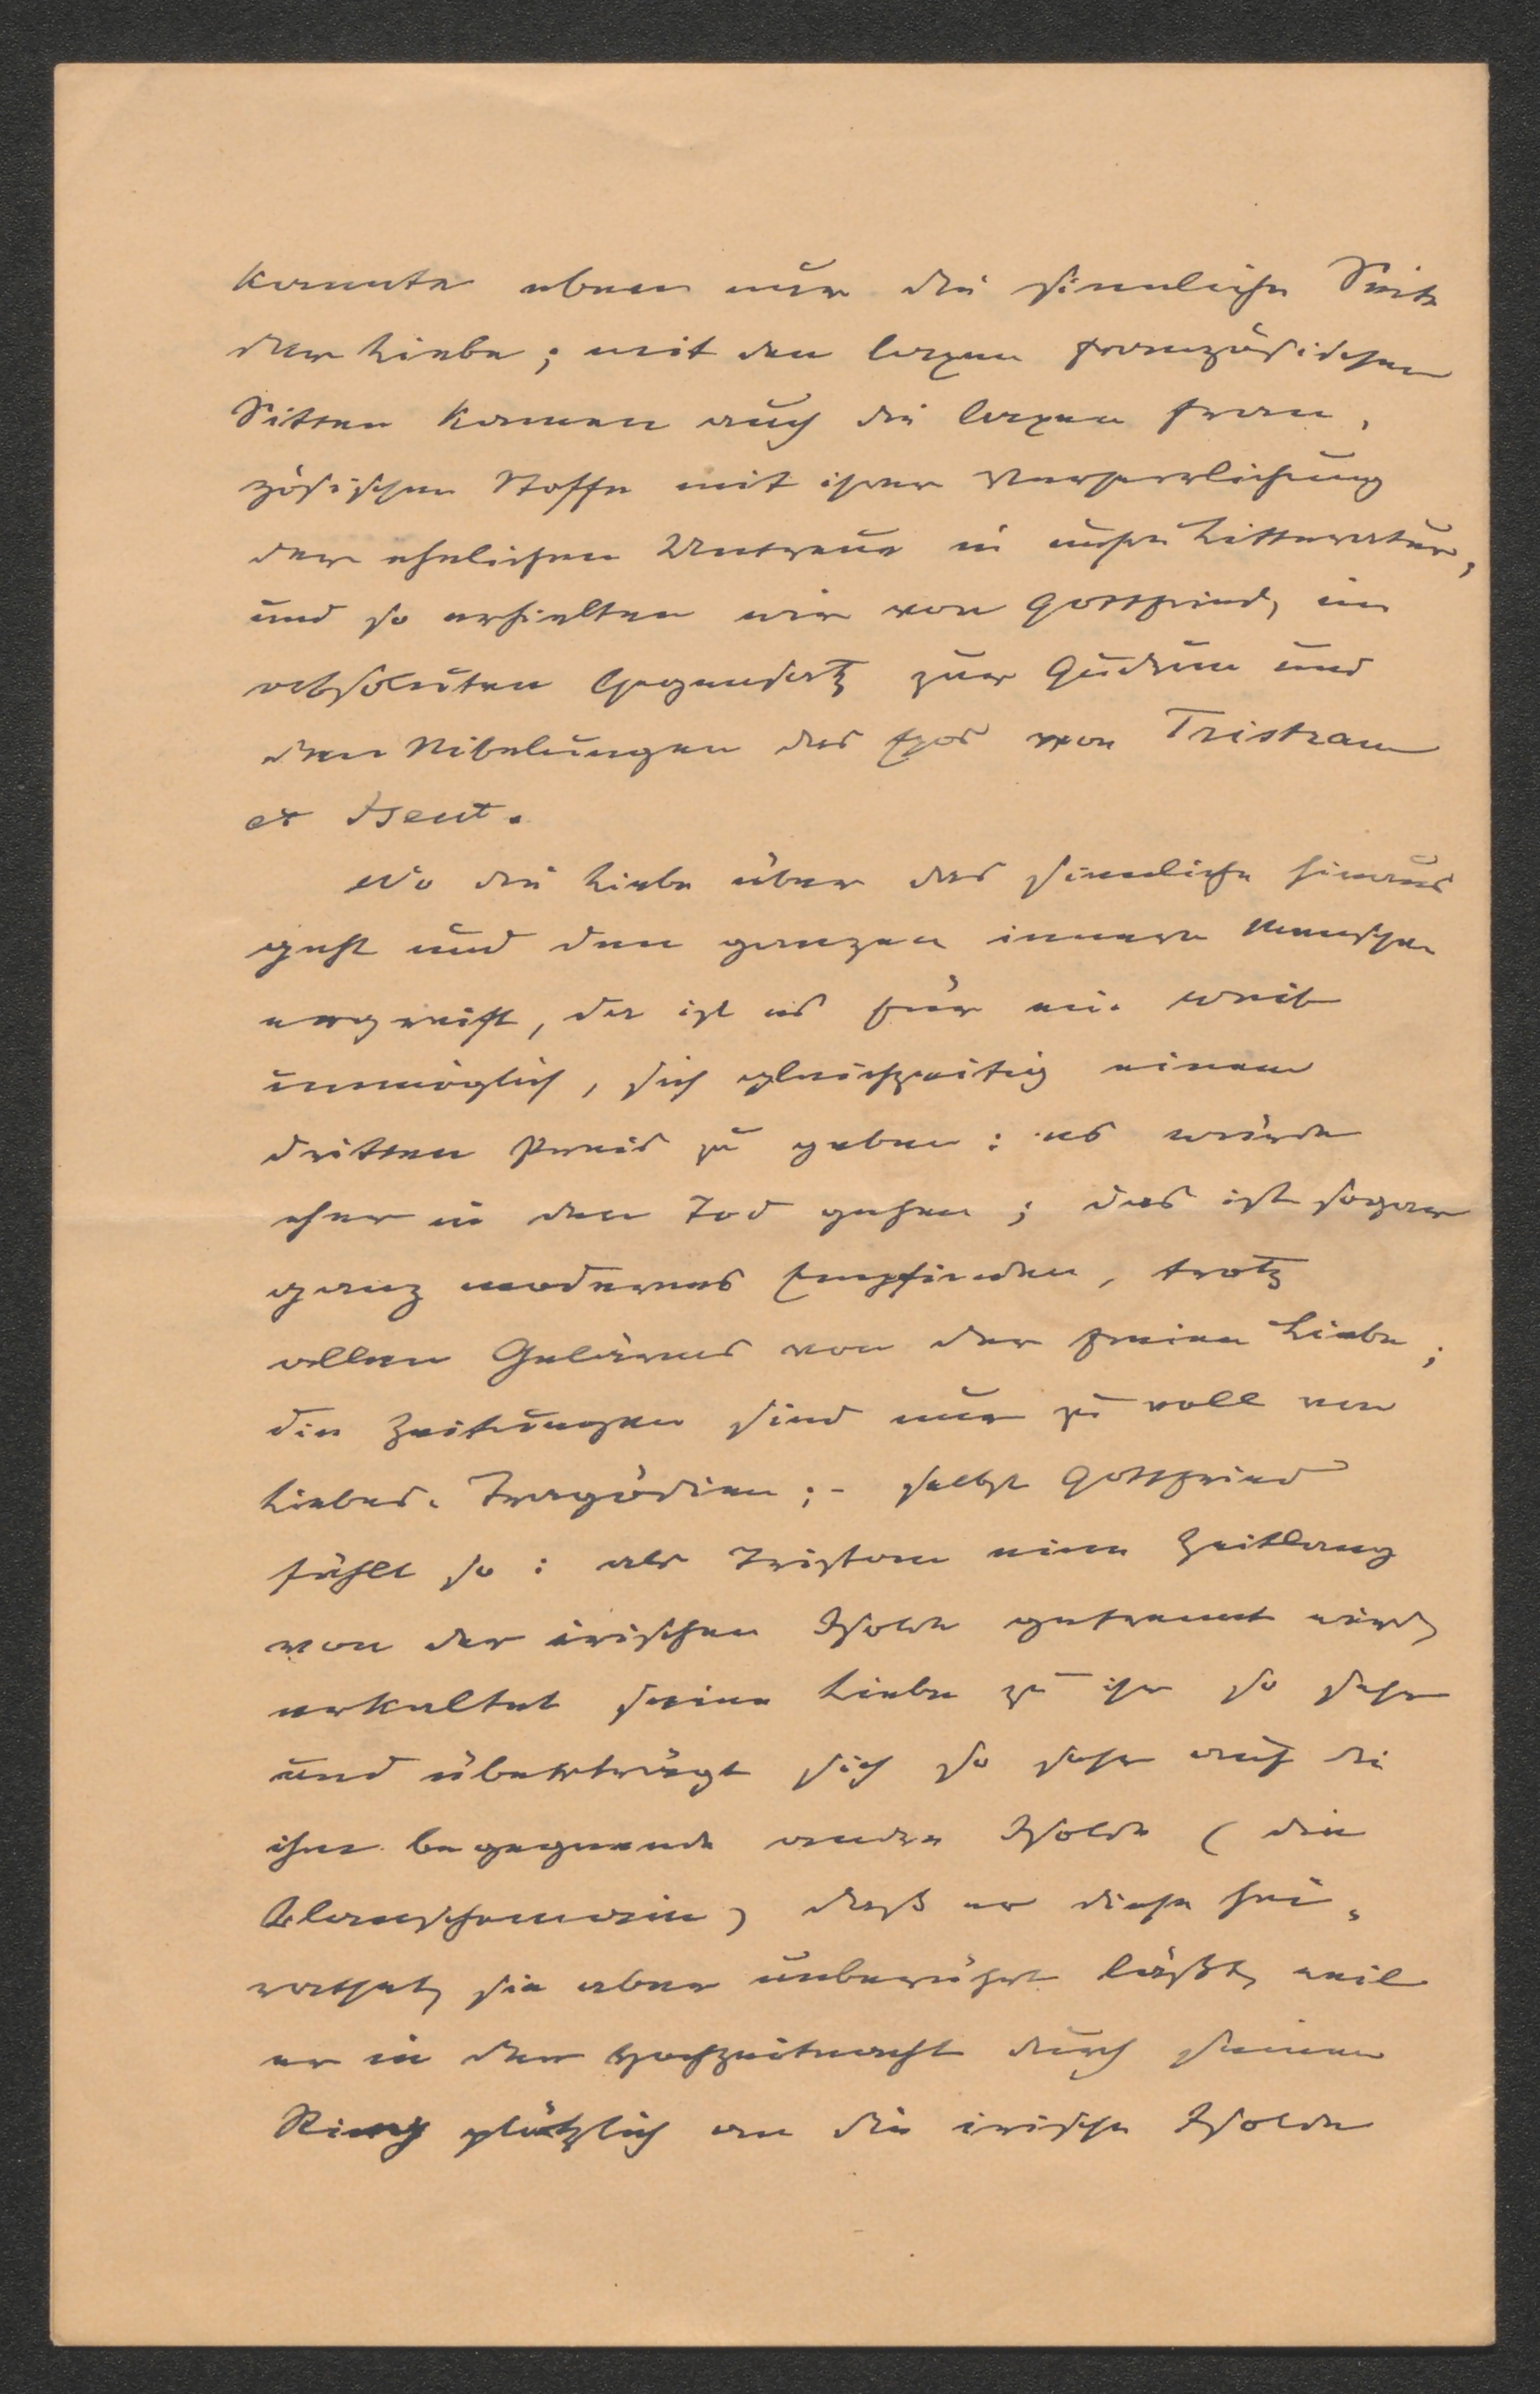 kannte eben nur die sinnliche Seite
der Liebe; mit den laxen französischen
Sitten kamen auch die laxen fran-
zösischen Stoffe mit ihrer Verherrlichung
der ehelichen Untreue in unsre Litteratur,
und so erhielten wir von Gottfried, im
absoluten Gegensatz zur Gudrun und
den Nibelungen das Epos von Tristram
et Iseut.
Wo die Liebe über das sinnliche hinaus
geht und den ganzen innern Menschen
ergreift, da ist es für ein Weib
unmöglich, sich gleichzeitig einem
dritten Preis zu geben: es würde
eher in den Tod gehen; das ist sogar
ganz modernes Empfinden, trotz
allen Gelärmes von der freien Liebe;
die Zeitungen sind nur zu voll von
Liebes-Tragödien; - selbst Gottfried
fühlt so: als Tristan eine Zeitlang
von der irischen Isolde getrennt wird,
erkaltet seine Liebe zu ihr so sehr
und überträgt sich so sehr auf die
ihm begegnende andre Isolde (die
Blanschemain) daß er diese hei-
rathet, sie aber unberührt läßt, weil
er in der Hochzeitnacht durch seinen
Ring plötzlich an die irische Isolde